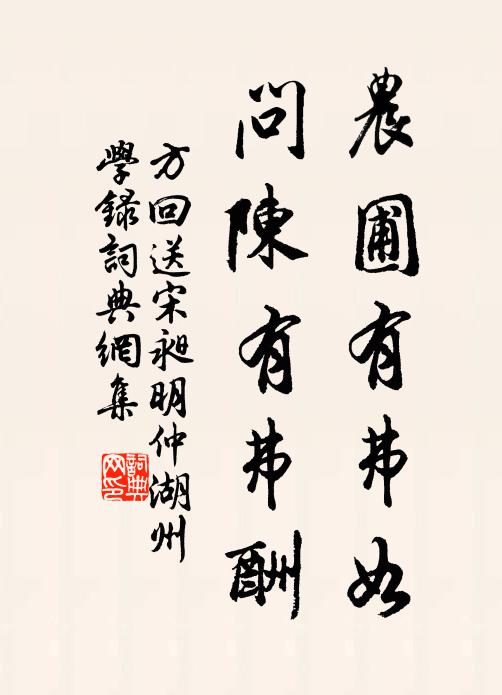 農圃有弗如
問陳有弗酬
方回送宋昶明仲湖州
學錄詞典網集
詞典
网印